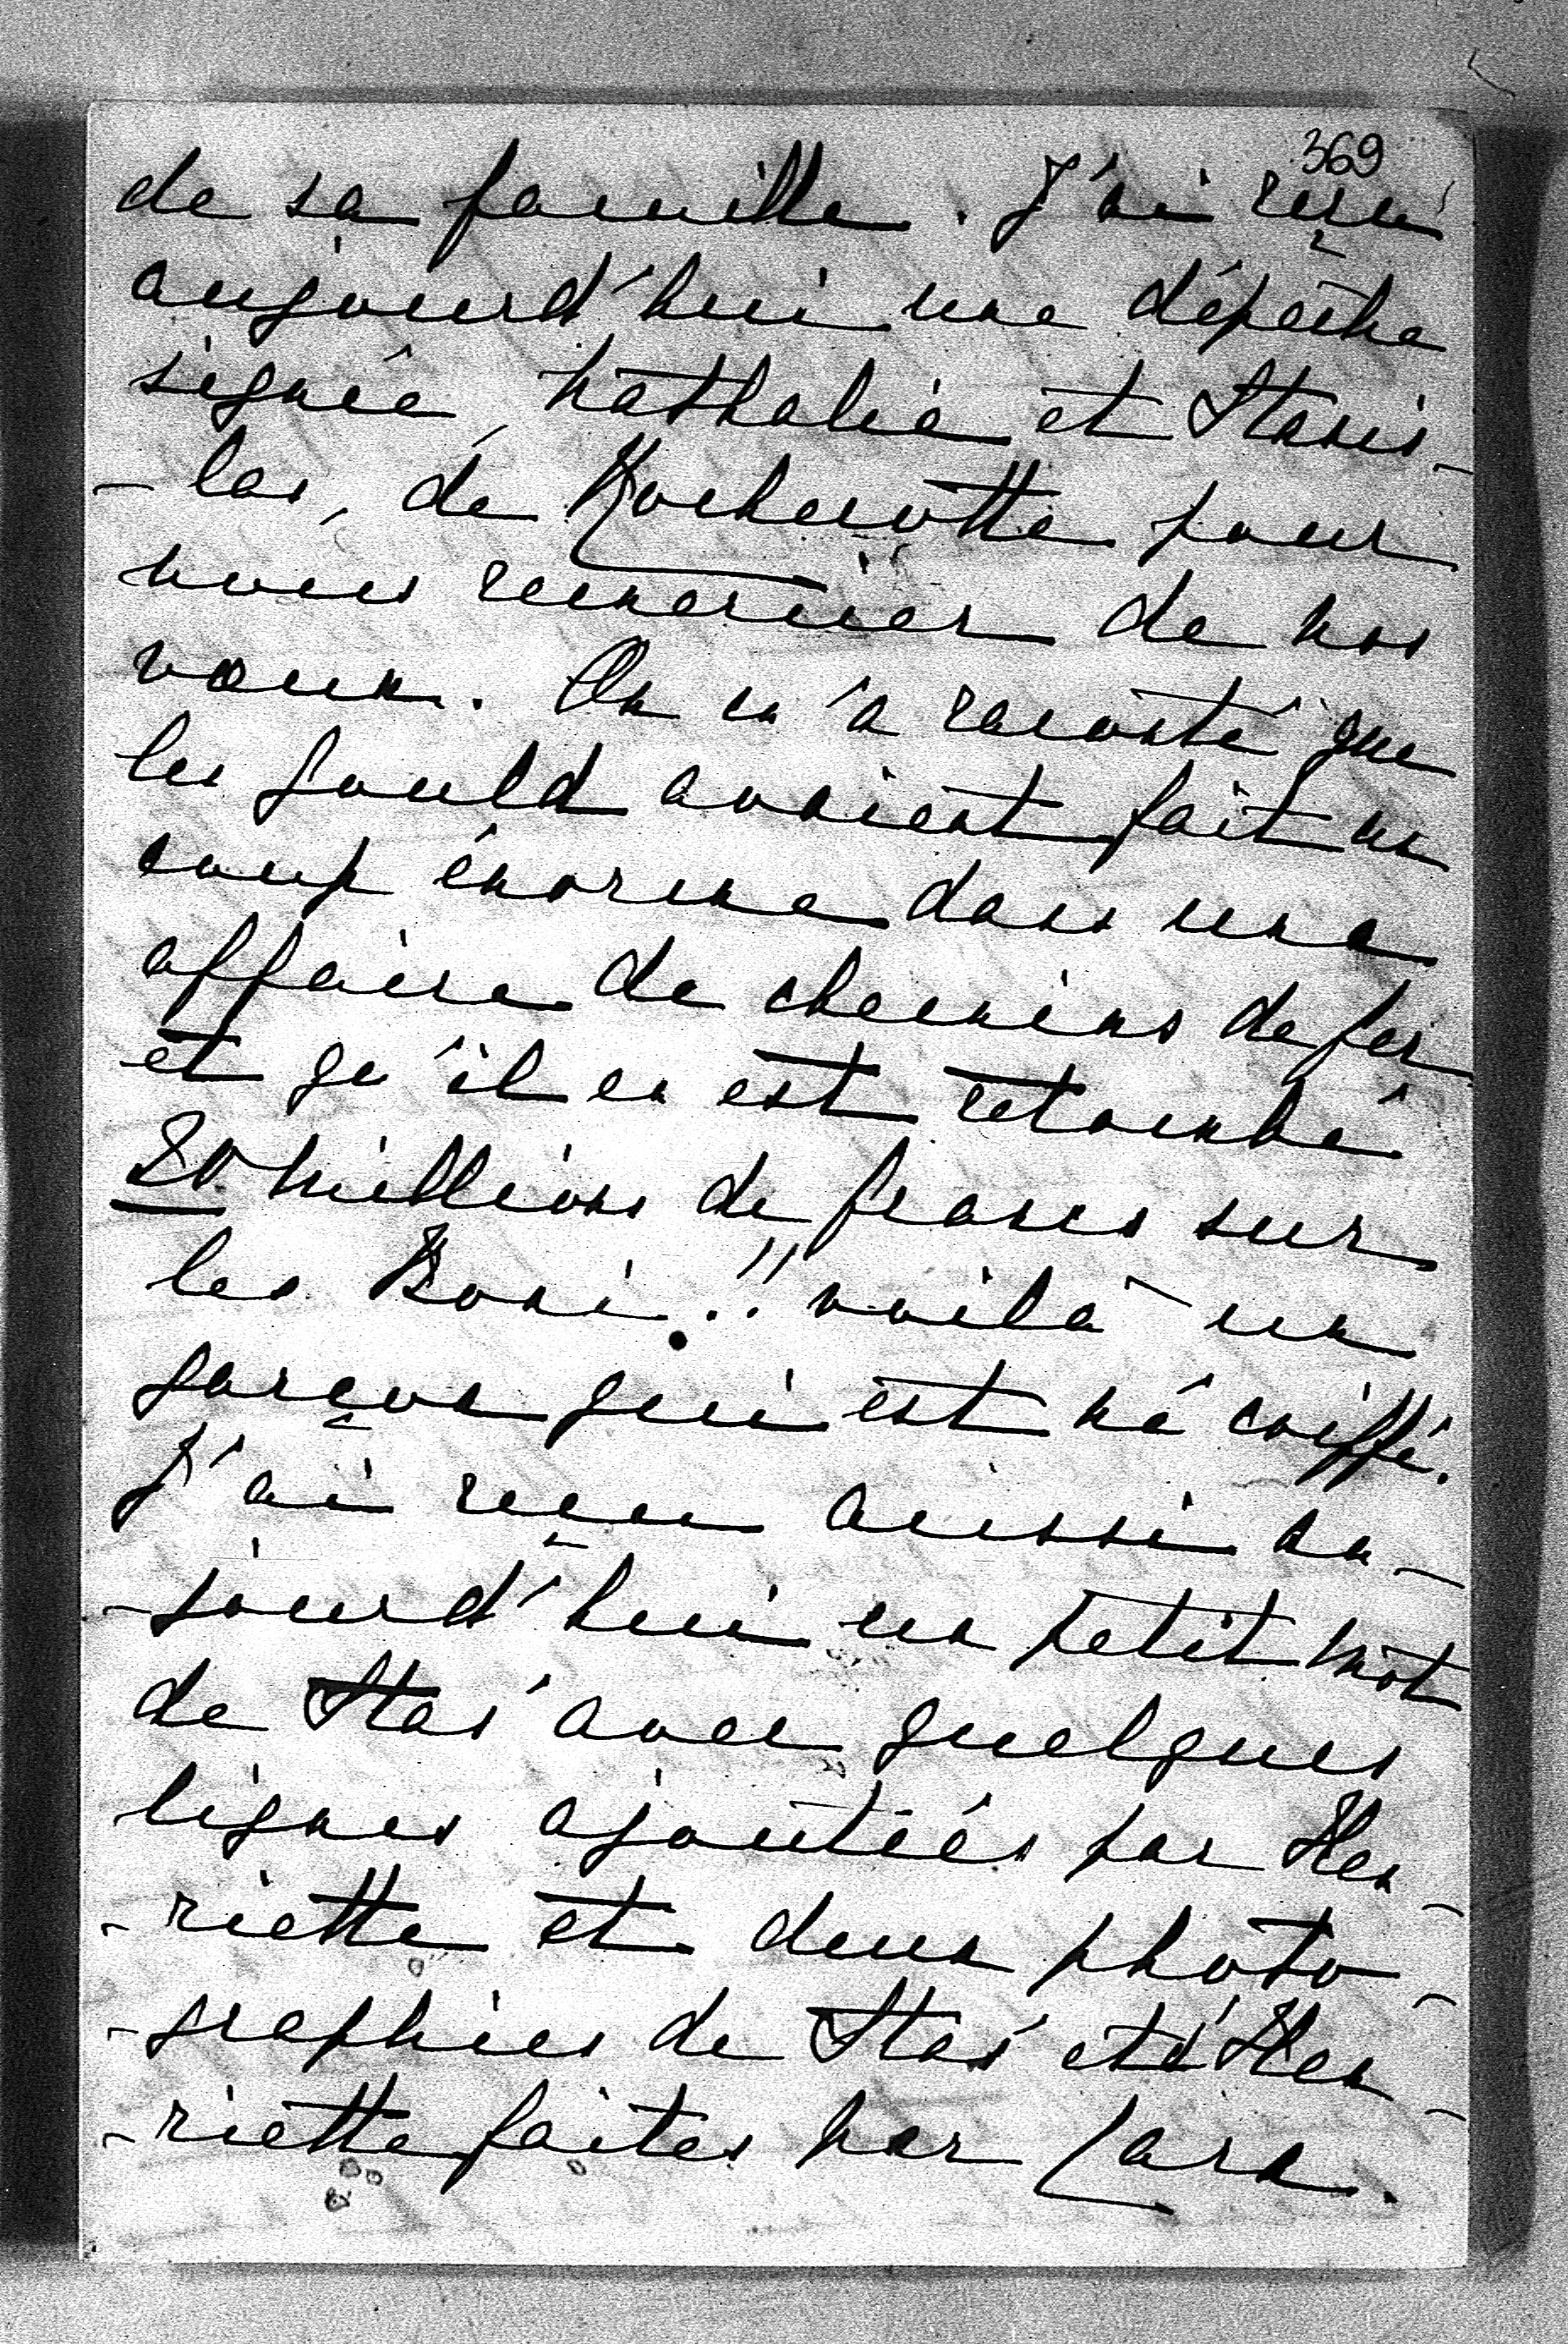 369
de sa famille. J'ai reçu
aujourd'hui une dépêche
signée, Nathalie et Stanis-
-las, de Rochecotte pour
nous remercier de nos
vœux. On m'a raconté que
les Gould avaient fait un
coup énorme dans une
affaire de chemins de fer
et qu'il en est retombé
20 millions de francs sur
les Boni!! voilà un
garçon qui est né coiffé.
J'ai reçu aussi au-
-jourd'hui un petit mot
de Stas' avec quelques
lignes ajoutées par Hen-
-riette et deux photo-
-graphies de Stas' et d'Hen-
-riette faites par Lara.